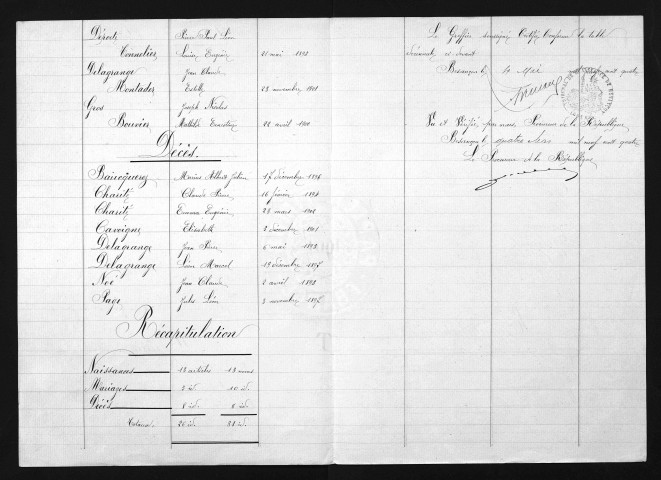 Dérode Pierre Paul Léon
Tonnelier Louise Eugénie 21 mai 1898
Delagrange Jean Claude
Montador Estelle 23 novembre 1901
Gros Joseph Nicolas
Bouvier Mathilde Ernestine 28 avril 1900
Décès.
Bairqueroz Marius Albert Julien 17 décembre 1894
Chauté Claude Pierre 16 février 1894
Chauté Emma Eugénie 28 mars 1901
Cavoigne Elisabeth 2 décembre 1901
Delagrange Jean Pierre 6 mai 1898
Delagrange Léon Marcel 19 décembre 1895
Noé Jean Claude 2 avril 1898
Page Jules Léon 3 novembre 1895
Récapitulation
Naissances 13 articles 13 noms
Mariages 5 id. 10 id.
Décès 8 id. 8 id.
Totaux 26 id. 31 id.
Le Greffier soussigné Certifie Conforme la table
Décennale ci-devant
Besançon le 4 Mai mil neuf cent quatre
Vu et Vérifié par nous, Procureur de la République
Besançon le quatre Mai mil neuf cent quatre
Le Procureur de la République